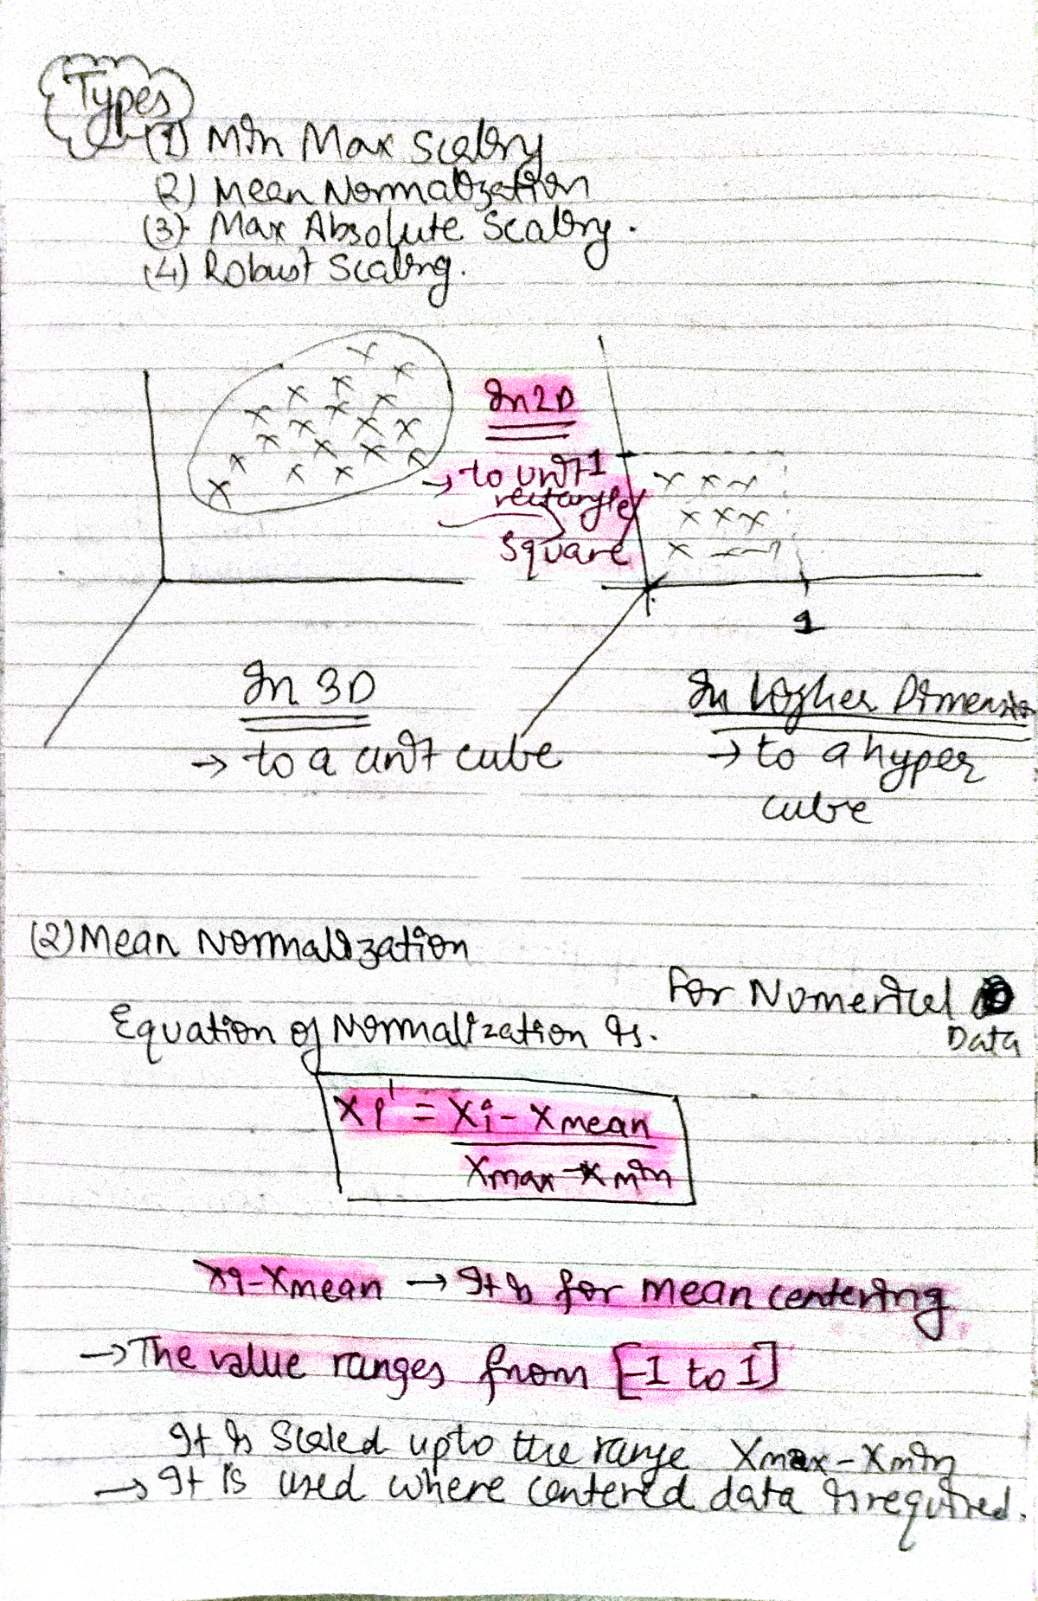 Types
(1) Min Max Scaling
(2) Mean Normalization
(3) Max Absolute Scaling.
(4) Robust Scaling.
In 2D
→ to unit
rectangle/
square
1
1
In 3D
→ to a unit cube
In higher Dimension
→ to a hyper
cube
(2) Mean Normalization
For Numerical
Data
Equation of Normalization is.
Xi' = Xi - Xmean
Xmax - Xmin
Xi-Xmean → It is for mean centering
→ The value ranges from [-1 to 1]
It is Scaled upto the range Xmax - Xmin
→ It is used where centered data is required.